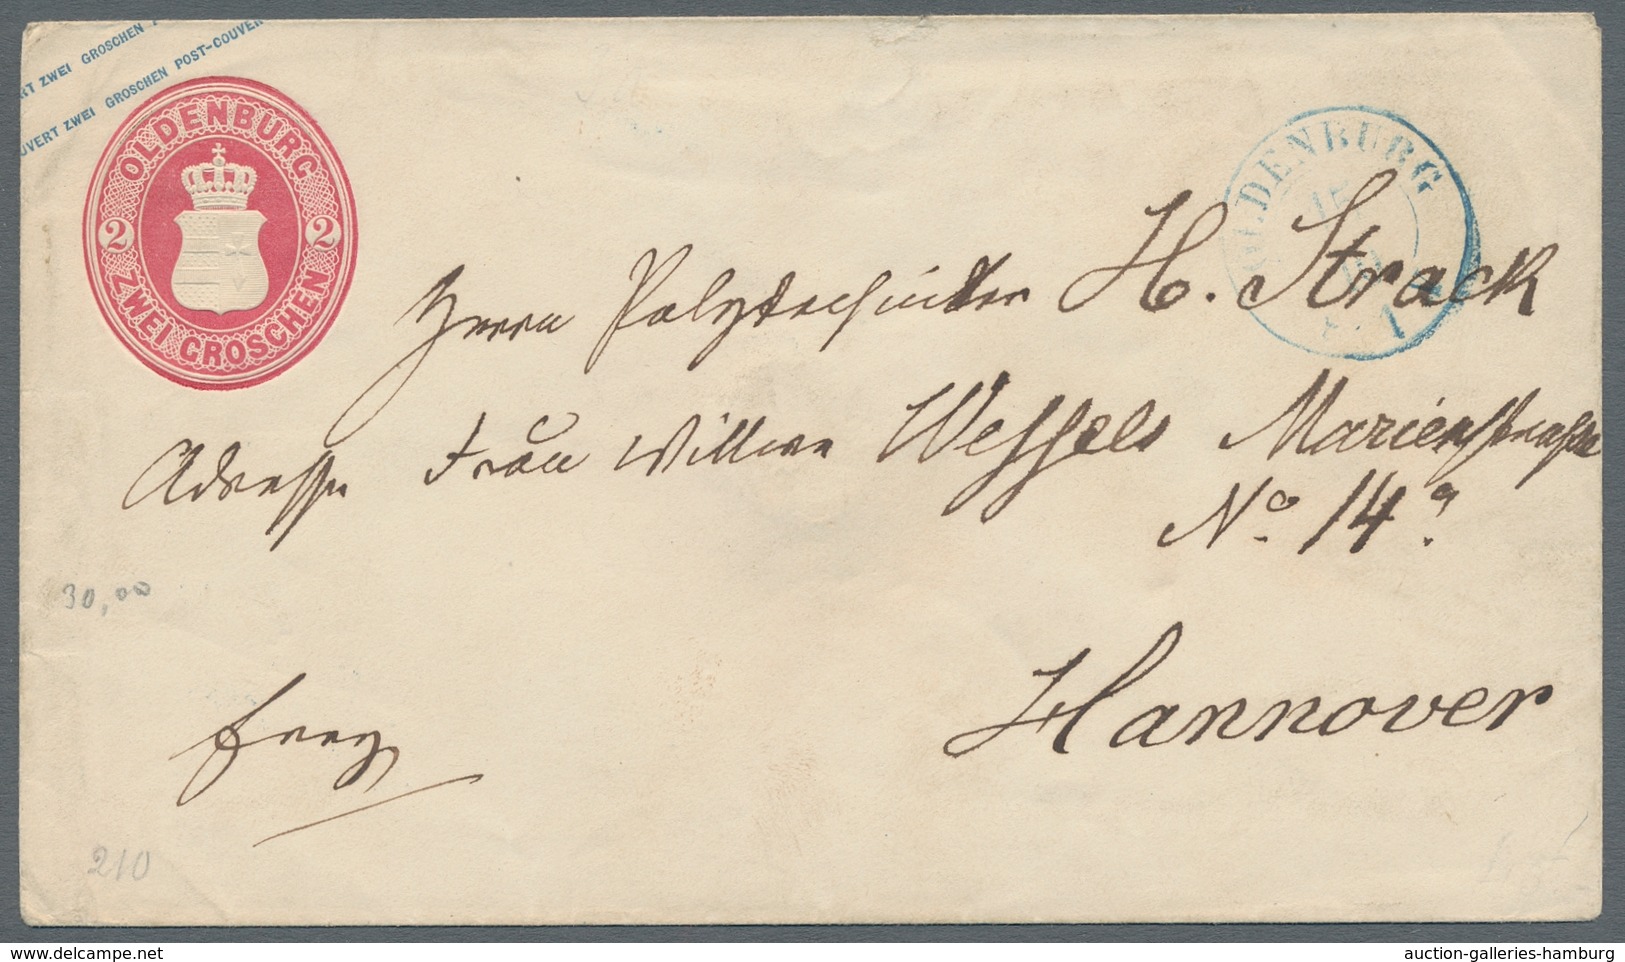 RT ZWEI GROSCHEN
UVERT ZWEI GROSCHEN POST-COUVER
OLDENBURG
2 2
ZWEI GROSCHEN
OLDENBURG
Herrn Polytechniker H. Strack
Adresse Frau Wittwe Wessels Marienstrasse
No. 14
Hannover
30,00
frey
210
auction-galleries-hamburg